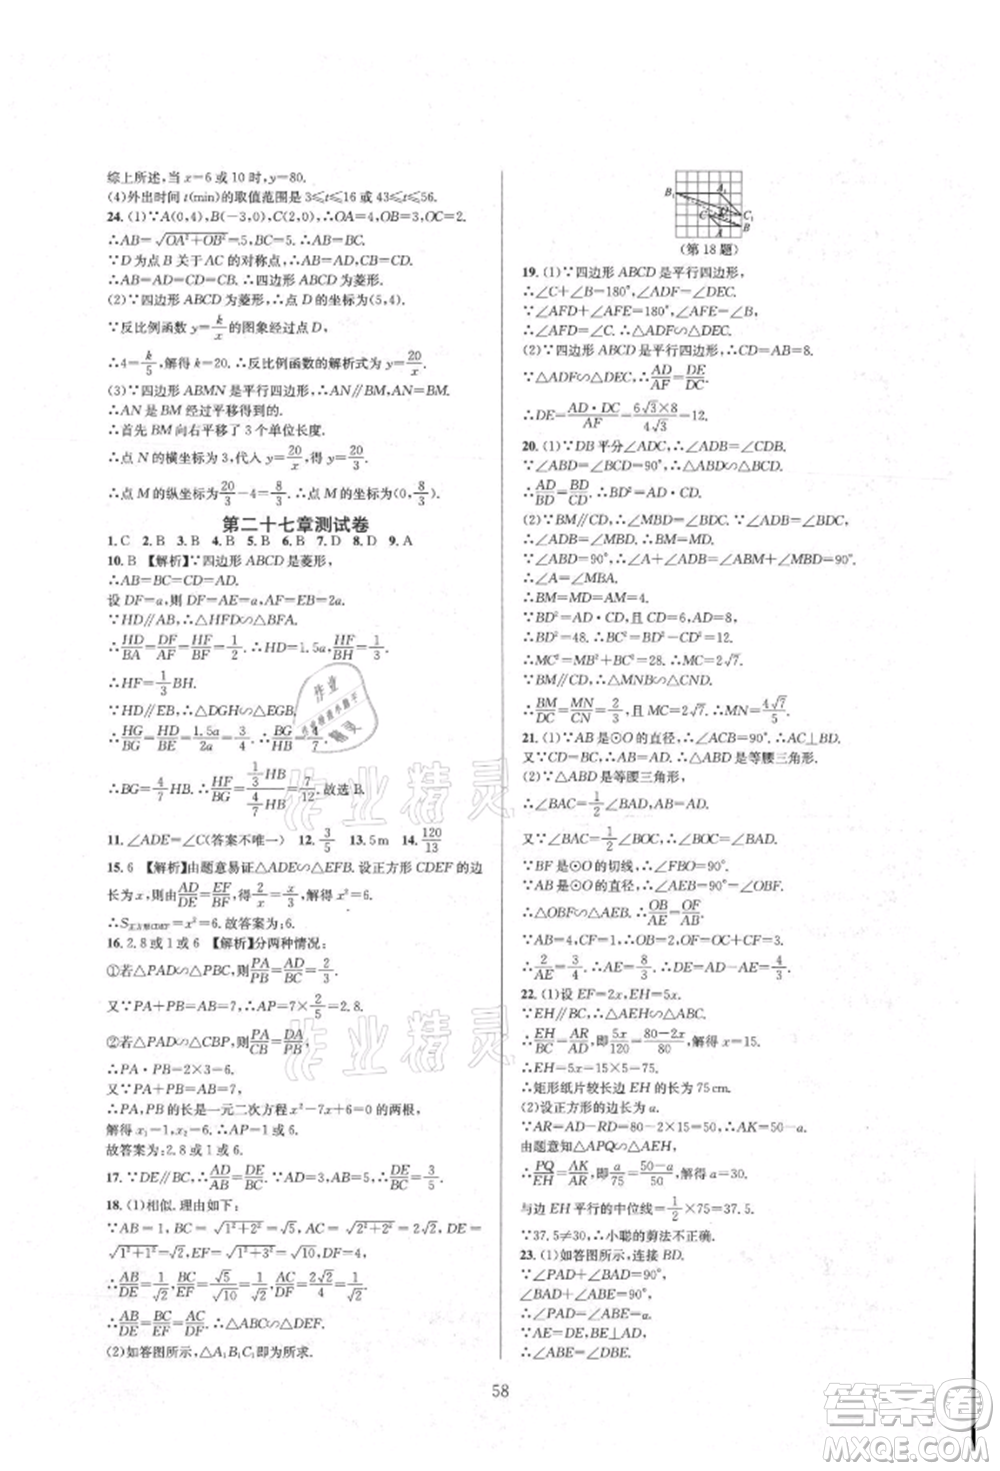 综上所述,当 x=6 或 10 时,y=80.
(4)外出时间 t(min)的取值范围是 3≤t≤16 或 44≤t≤56.
24. (1)∵A(0,4),B(-3,0),C(2,0),∴OA=4,OB=3,OC=2.
∴AB=√(OA²+OB²)=5,BC=5.∴AB=BC.
∵D 为点 B 关于 AC 的对称点,∴AB=AD,CB=CD.
∴AB=AD=CD=CB.∴四边形 ABCD 为菱形.
(2)∵四边形 ABCD 为菱形,∴点 D 的坐标为(5,4).
∵反比例函数 y=k/x 的图象经过点 D,
∴4=k/5,解得 k=20.∴反比例函数的解析式为 y=20/x.
(3)∵四边形 ABMN 是平行四边形,∴AN∥BM,AN=BM.
∴AN 是 BM 经过平移得到的.
∴首先 BM 向右平移了 3 个单位长度.
∴点 N 的横坐标为 3,代入 y=20/x,得 y=20/3.
∴点 M 的纵坐标为20/3-4=8/3.∴点 M 的坐标为(0,8/3).
第二十七章测试卷
1. C 2. B 3. B 4. B 5. B 6. B 7. D 8. D 9. A
10. B 【解析】∵四边形 ABCD 是菱形,
∴AB=BC=CD=AD.
设 DF=a,则 DF=AE=a,AF=EB=2a.
∵HD∥AB,∴△HFD∽△BFA.
∴HD/BA=DF/AF=HF/BF=1/2.∴HD=1.5a,HF/BH=1/3.
∴HF=1/3BH.
∵HD∥EB,∴△DGH∽△EGB.
∴HG/BG=HD/BE=1.5a/2a=3/4.∴BG/HB=4/7.
∴BG=4/7HB.∴HF/BG=(1/3HB)/(4/7HB)=7/12.故选 B.
11. ∠ADE=∠C(答案不唯一) 12. 3/5 13. 5 m 14. 120/13
15. 6 【解析】由题意易证△ADE∽△EFB.设正方形 CDEF 的边
长为 x,则由AD/DE=EF/BF,得2/x=x/3,x²=6.
∴S正方形CDEF=x²=6.故答案为:6.
16. 2.8 或 1 或 6 【解析】分两种情况:
①若△PAD∽△PBC,则PA/PB=AD/BC=2/3.
又∵PA+PB=AB=7,∴PA=7×2/5=2.8.
②若△PAD∽△CBP,则PA/CB=DA/PB.
∴PA·PB=2×3=6.
又∵PA+PB=7,
∴PA,PB 的长是一元二次方程 x²-7x+6=0 的两根,
解得 x₁=1,x₂=6.∴AP=1 或 6.
故答案为:2.8 或 1 或 6.
17. ∵DE∥AC,∴AD/AB=
18. (1)相似.理由如下:
∵AB=1,BC=√(1²+2²)=√5,AC=√(2²+2²)=2√2,DE=
√(1²+1²)=√2,EF=√(1²+3²)=√10,DF=4,
∴AB/DE=1/√2,BC/EF=√5/√10=1/√2,AC/DF=2√2/4=1/√2.
∴AB/DE=BC/EF=AC/DF.∴△ABC∽△DEF.
(2)如答图所示,△A₁B₁C₁即为所求.
A₁
B₁
C₁
C
B
A
(第 18 题)
19. (1)∵四边形 ABCD 是平行四边形,
∴∠C+∠B=180°,∠ADF=∠DEC.
∵∠AFD+∠AFE=180°,∠AFE=∠B,
∴∠AFD=∠C.∴△ADF∽△DEC.
(2)∵四边形 ABCD 是平行四边形,∴CD=AB=8.
∵△ADF∽△DEC,∴AD/AF=DE/DC.
∴DE=AD·DC/AF=6√3×8/4√3=12.
20. (1)∵DB 平分∠ADC,∴∠ADB=∠CDB.
∵∠ABD=∠BCD=90°,∴△ABD∽△BCD.
∴AD/BD=BD/CD.∴BD²=AD·CD.
(2)∵BM∥CD,∴∠MBD=∠BDC=∠ADB.
∵∠ABD=90°,∴∠A+∠ADB=∠ABM+∠MBD=90°.
∴∠A=∠MBA.
∴BM=MD=AM=4.
∵BD²=AD·CD,CD=6,AD=8,
∴BD²=48.∴BC²=BD²-CD²=12.
∴MC²=MB²+BC²=28.∴MC=2√7.
∵BM∥CD,∴△MNB∽△CND.
∴BM/CD=MN/CN=2/3.∵MC=2√7,∴MN=4√7/5.
21. (1)∵AB 是⊙O 的直径,∴∠ACB=90°.∴AC⊥BD.
又∵CD=CB,∴AD=AB.∴△ABD 是等腰三角形.
(2)∵△ABD 是等腰三角形,
∴∠BAC=1/2∠BAD,AC⊥BD.
又∵∠BAC=1/2∠BOC,∴∠BOC=∠BAD.
∵BF 是⊙O 的切线,∴∠FBO=90°.
∵AB 是⊙O 的直径,∴∠AEB=90°=∠OBF.
∴△OBF∽△AEB.∴OB/AE=OF/AB.
∵AB=4,CF=1,∴OB=2,OF=OC+CF=3.
∴2/AE=3/4.∴AE=8/3.∴DE=AD-AE=AB-AE=4/3.
22. (1)设 EF=2x,EH=5x.
∵EH∥BC,∴△AEH∽△ABC.
∴EH/BC=AR/AD,即5x/120=(80-2x)/80,解得 x=15.
∴EH=5x=15×5=75.
∴矩形纸片较长边 EH 的长为 75 cm.
(2)设正方形的边长为 a.
∵AR=AD-RD=80-30=50,
由题意知△APQ∽△AEH,
∴PQ/EH=AK/AR,即a/75=(50-a)/50,解得 a=30.
与边 EH 平行的中位线=1/2×75=37.5.
∵37.5≠30,∴小聪的剪法不正确.
23. (1)如答图所示,连接 BD.
∵∠PAD+∠BAD=90°,
∠BAD+∠ABE=90°,
∴∠PAD=∠ABE=a.
∵AE=DE,BE⊥AD,
∴BD=BA.∴∠DBE=∠ABE.
58
作业精灵
答案圈
MXQE.COM